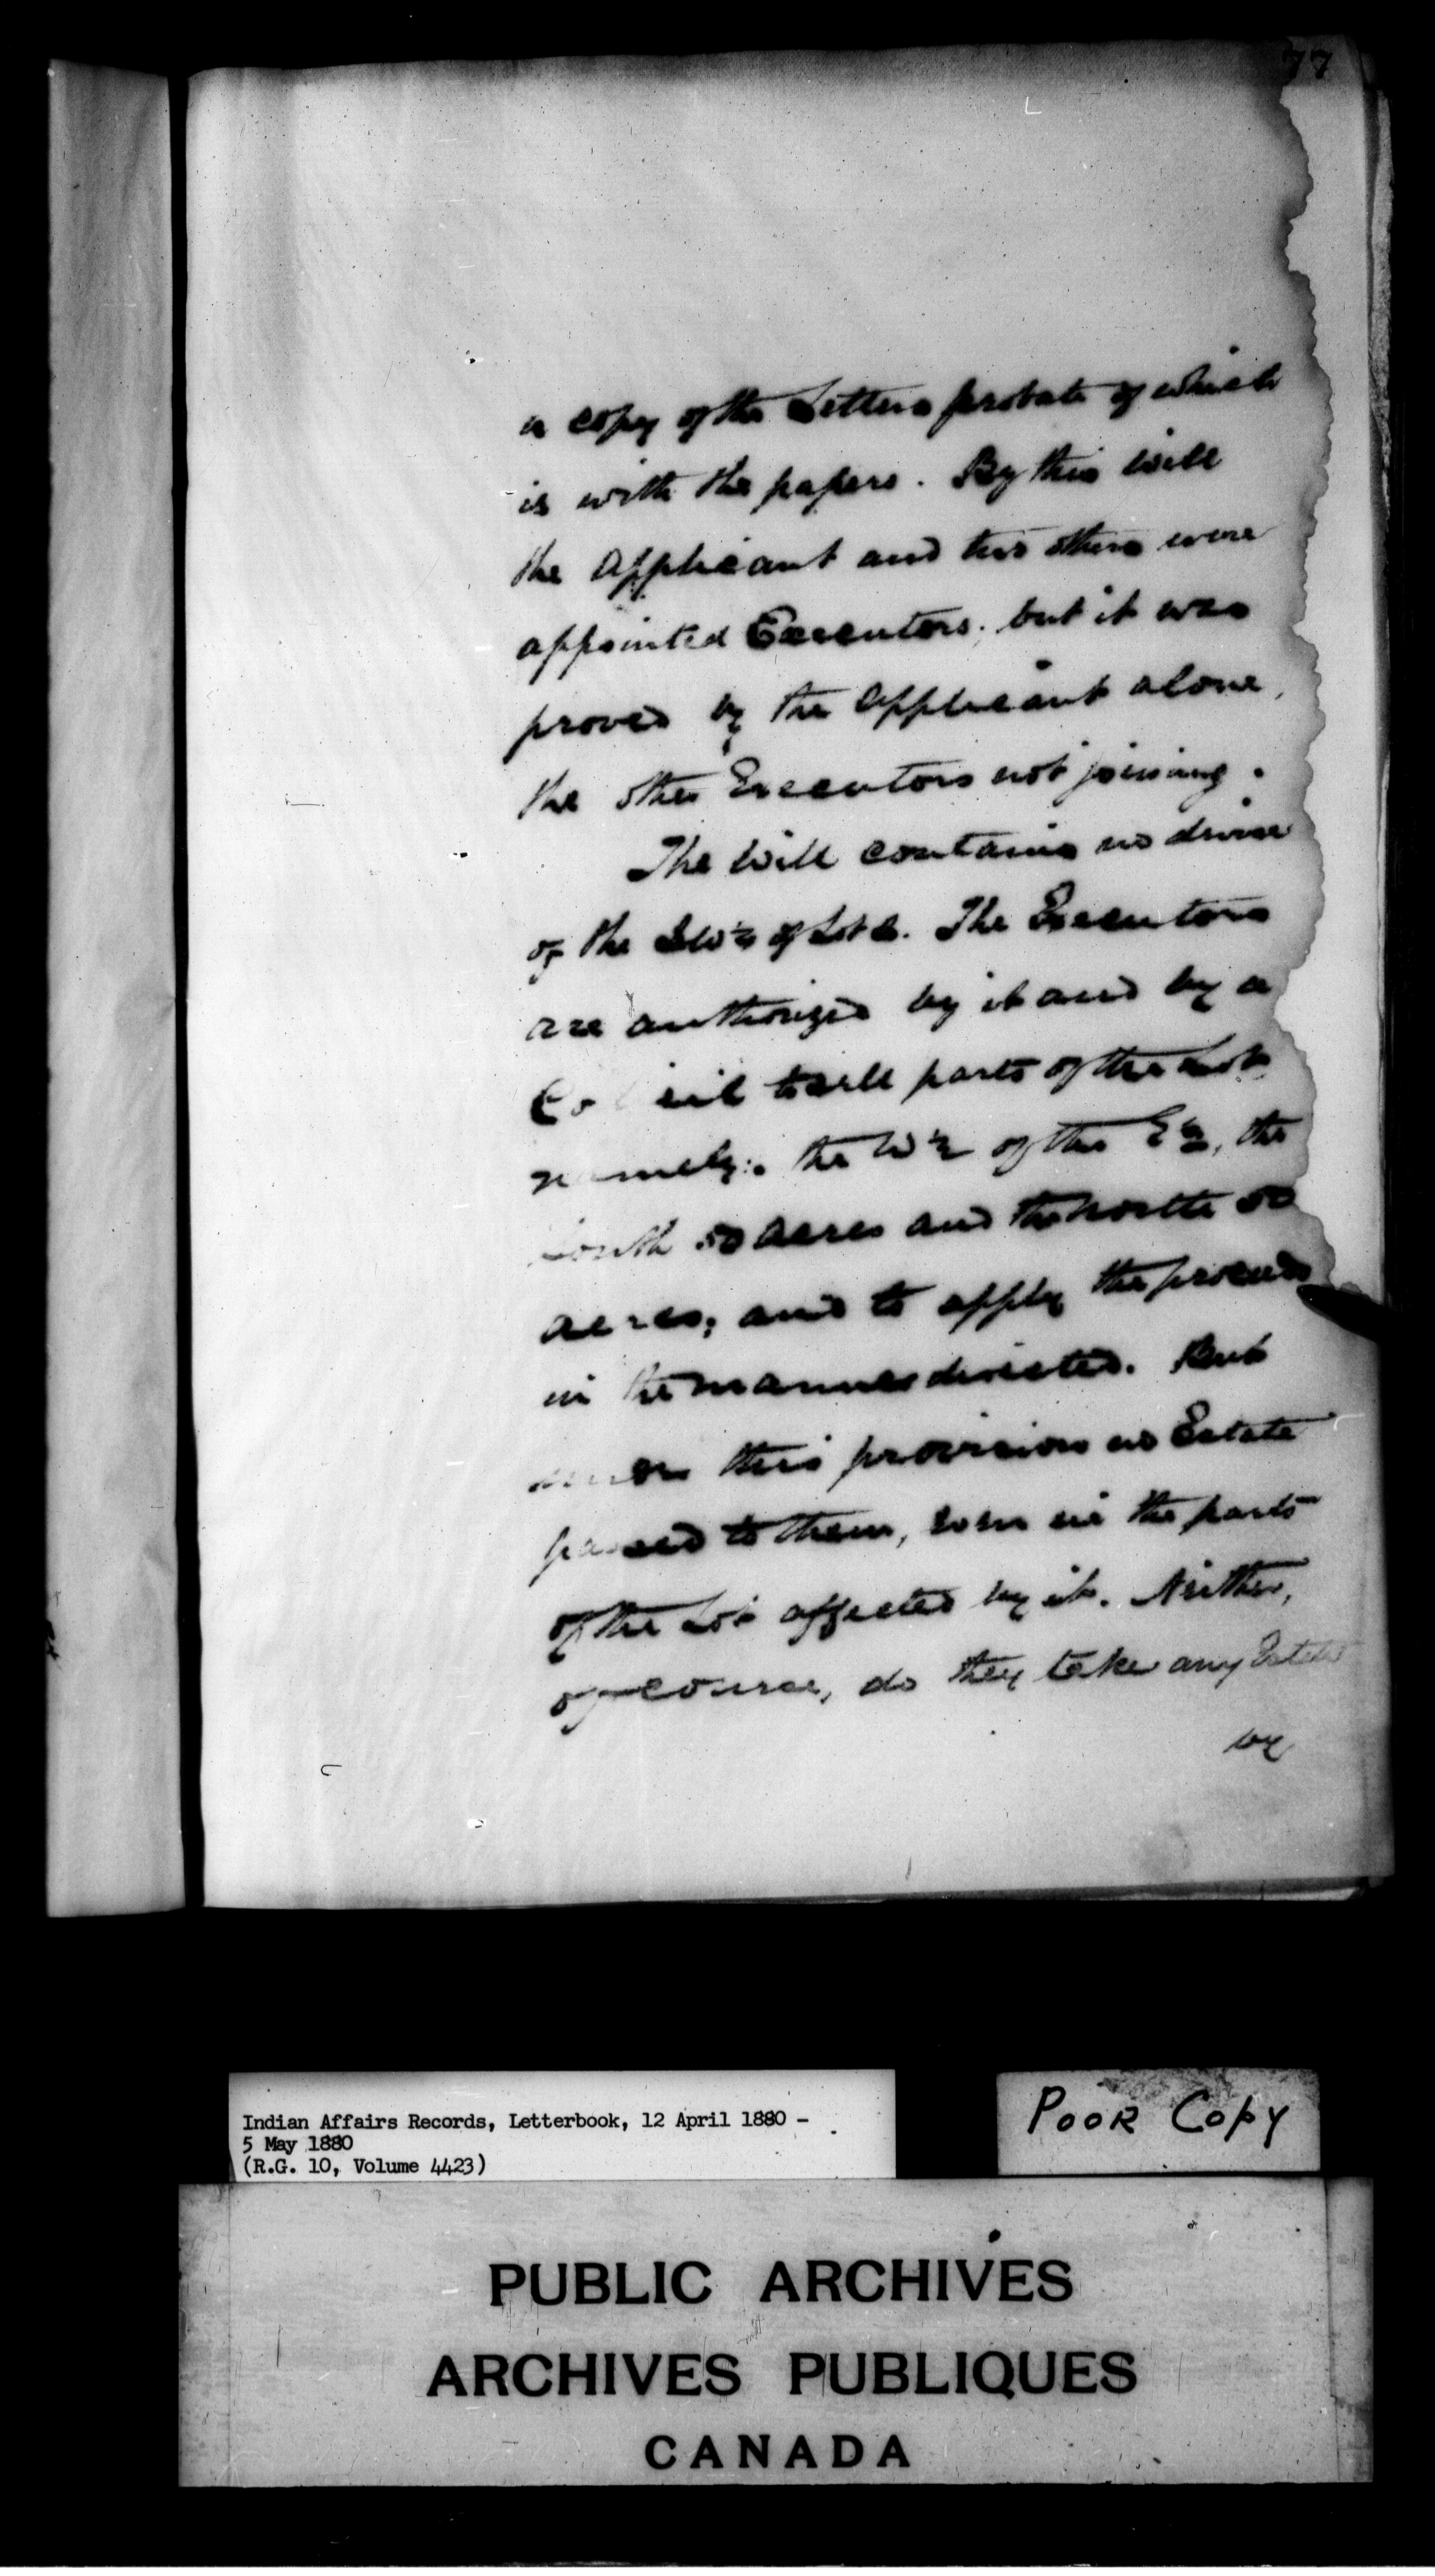 77
a copy of the Letters probate of which
is with the papers. By this will
the Applicant and two others were
appointed Executors; but it was
proved by the Applicant alone,
the other Executors not joining.
The Will contains no devise
of the of Lot. The Executors
are authorized by it and by a
Co il to sell parts of the Lot
namely:. the W½ of the E½, the
South 50 acres and the North 50
acres; and to apply the proceeds
in the manner directed. But
under this provision no Estate
passed to them, even in the parts
of the Lot affected by it. Neither,
of course, do they take any Estate
by
Indian Affairs Records, Letterbook, 12 April 1880 -
5 May 1880
(R.G. 10, Volume 4423)
POOR COPY
PUBLIC ARCHIVES
ARCHIVES PUBLIQUES
CANADA